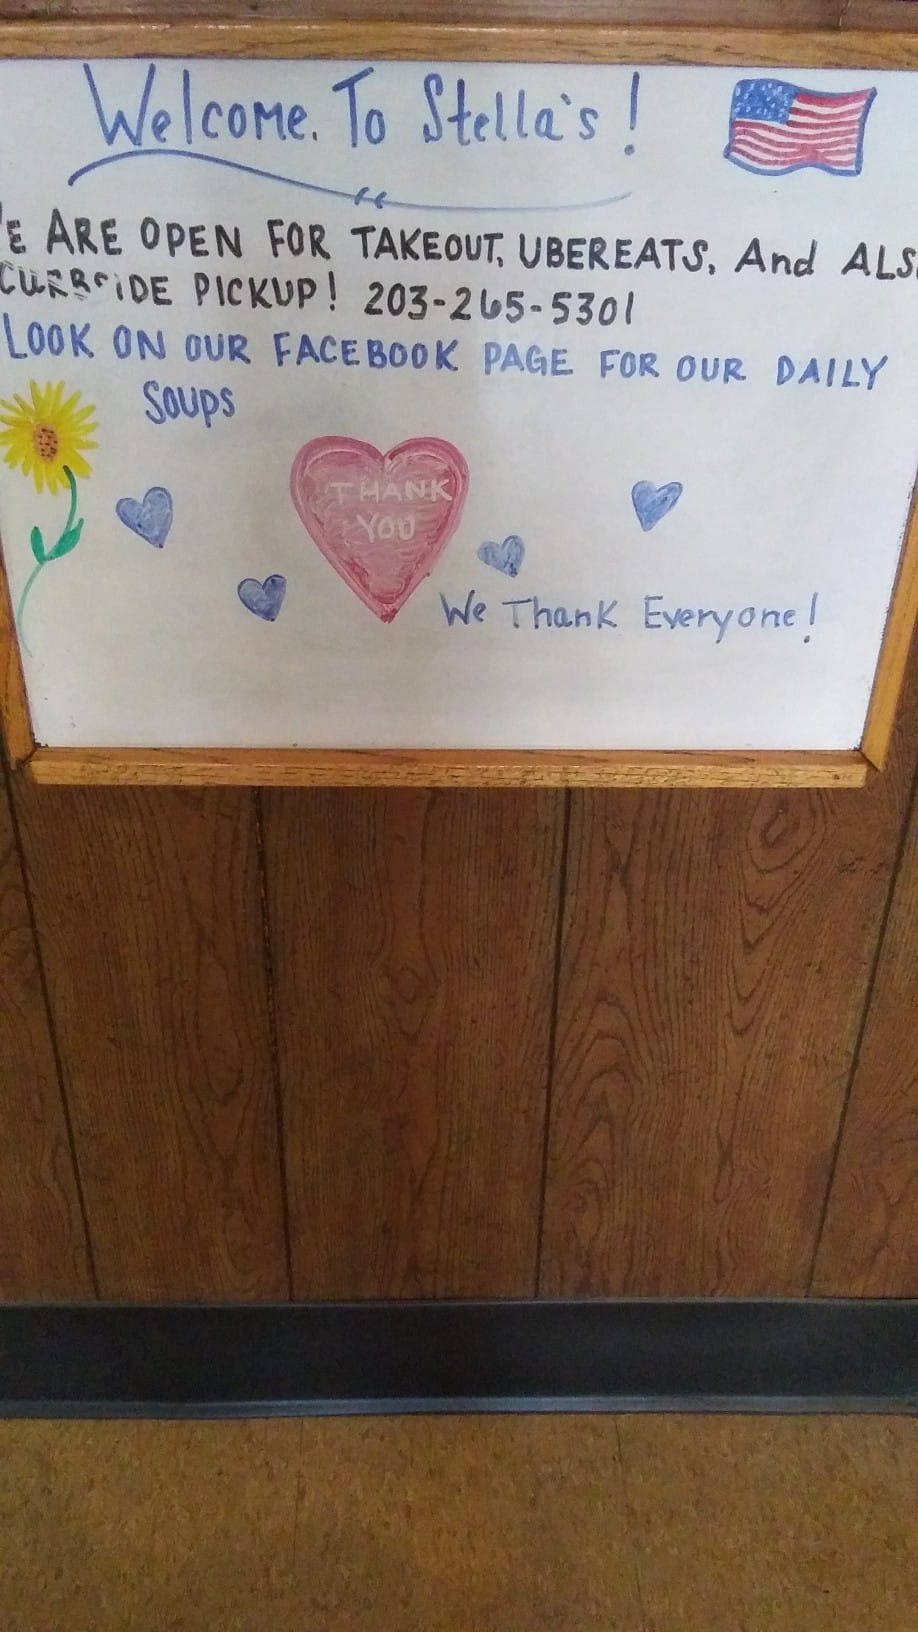 Welcome. To Stella's!
E ARE OPEN FOR TAKEOUT, UBEREATS, And ALS
CURBSIDE PICKUP! 203-265-5301
LOOK ON OUR FACEBOOK PAGE FOR OUR DAILY
Soups
THANK
YOU
We Thank Everyone!